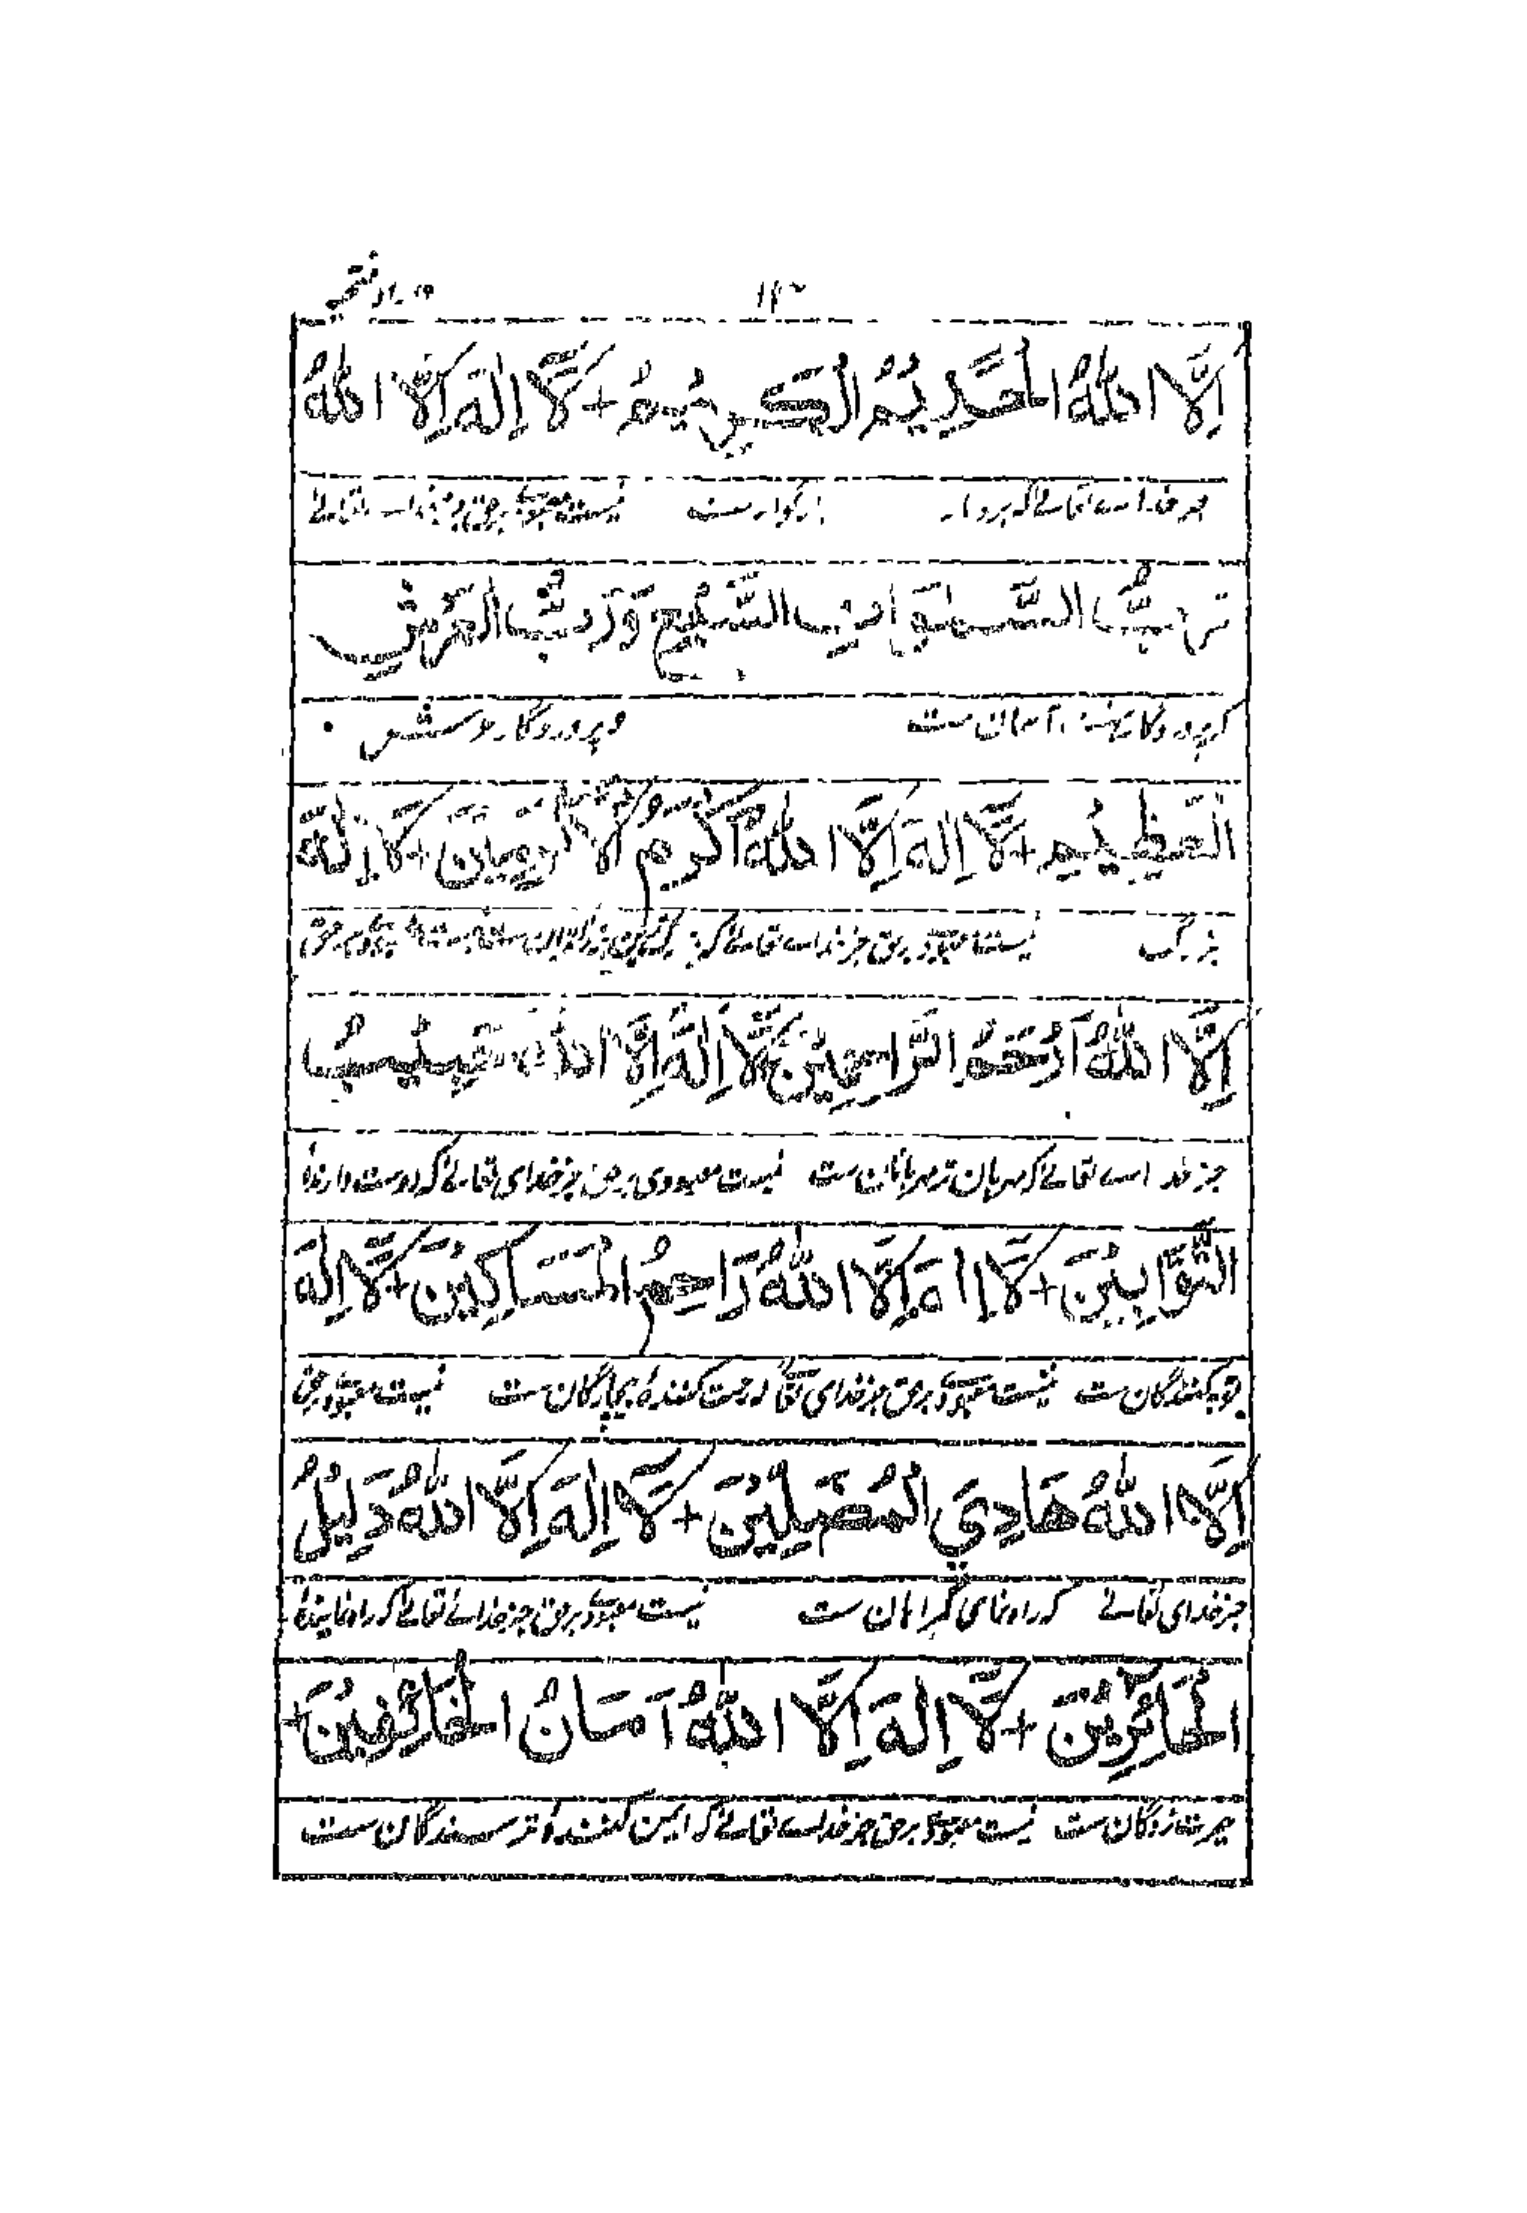 ۱۴۰
إِلَّا اللهُ الْحَلِيْمُ الْكَرِيْمُ + لَا إِلٰهَ إِلَّا اللهُ
جز خداے تعالے کہ بردبار نیست معبود برحق جز خداے تعالے
رَبُّ السَّمٰوَاتِ السَّبْعِ وَرَبُّ الْعَرْشِ
کہ پروردگار آسمان ست و پروردگار عرش
الْعَظِيْمِ + لَا إِلٰهَ إِلَّا اللهُ أَكْرَمُ الْأَكْرَمِيْنَ + لَا إِلٰهَ
بزرگ نیست معبود برحق جز خداے تعالے کہ
إِلَّا اللهُ أَرْحَمُ الرَّاحِمِيْنَ + لَا إِلٰهَ إِلَّا اللهُ حَبِيْبُ
جز خداے تعالے کہ مہربان تر مہربانان ست نیست معبودی برحق جز خدای تعالے کہ دوست دارندۂ
التَّوَّابِيْنَ + لَا إِلٰهَ إِلَّا اللهُ رَاحِمُ الْمَسَاكِيْنَ + لَا إِلٰهَ
توبہ کنندگان ست نیست معبود برحق جز خدای تعالے کہ رحمت کنندۂ بیچارگان ست نیست معبود برحق
إِلَّا اللهُ هَادِيَ الْمُضِلِّيْنَ + لَا إِلٰهَ إِلَّا اللهُ دَلِيْلُ
جز خدای تعالے کہ راہ نمای گمراہان ست نیست معبود برحق جز خداے تعالے کہ راہ نمایندۂ
الْحَائِرِيْنَ + لَا إِلٰهَ إِلَّا اللهُ أَمَانُ الْخَائِفِيْنَ +
حیرت زدگان ست نیست معبود برحق جز خداے تعالے کہ ایمن کنندۂ ترسندگان ست